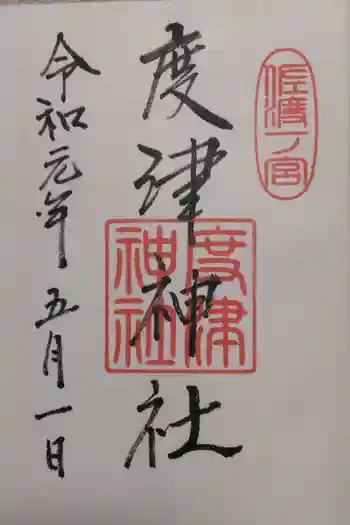 佐渡一ノ宮
度津神社
度津神社
令和元年五月一日